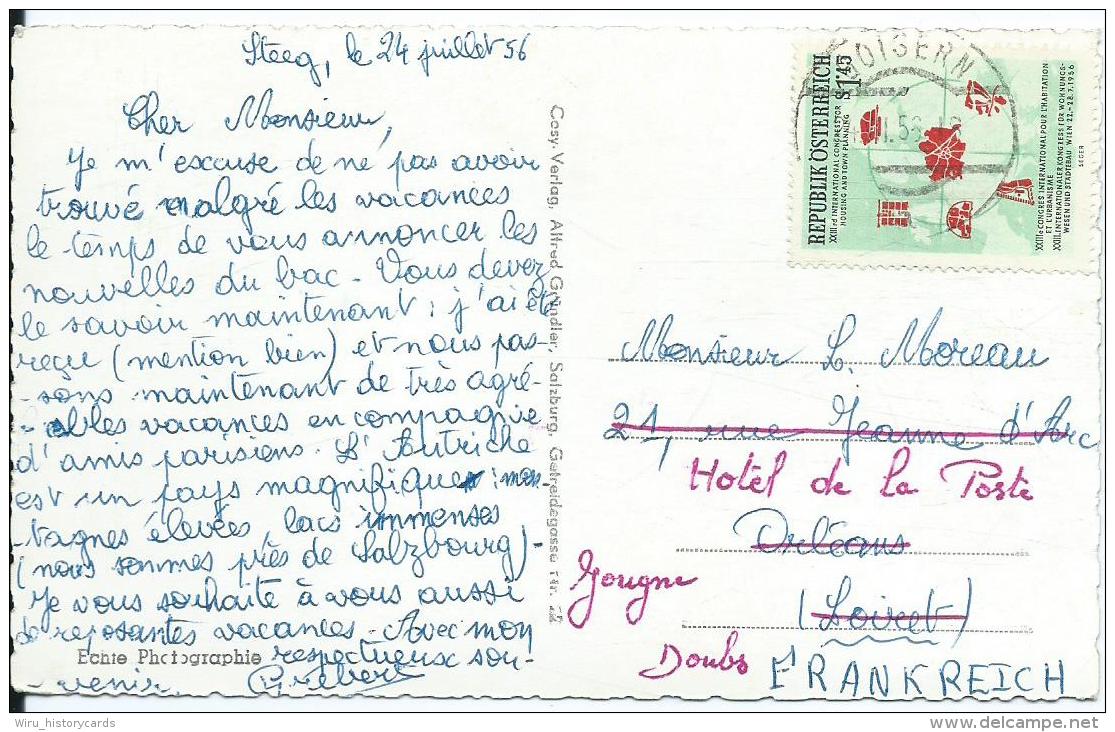 Steeg, le 24 juillet 56
Cher Monsieur,
Je m'excuse de ne pas avoir
trouvé malgré les vacances
le temps de vous annoncer les
nouvelles du bac - Vous devez
le savoir maintenant : j'ai été
reçu (mention bien) et nous pas-
-sons maintenant de très agré-
-ables vacances en compagnie
d'amis parisiens. L'Autriche
est un pays magnifique : mon-
-tagnes élevées lacs immenses
(nous sommes près de Salzbourg) -
Je vous souhaite à vous aussi
de reposantes vacances - Avec mon
Echte Photographie respectueux sou-
-venir.
Cosy-Verlag, Alfred Gründler, Salzburg, Getreidegasse Nr. 22
GOISERN
REPUBLIK ÖSTERREICH
S 1·45
XXIII rd INTERNATIONAL CONGRESS FOR
HOUSING AND TOWN PLANNING
XXIII e CONGRES INTERNATIONAL POUR L'HABITATION
ET L'URBANISME
XXIII. INTERNATIONALER KONGRESS FÜR WOHNUNGS-
WESEN UND STÄDTEBAU WIEN 22.-28.7.1956
SEGER
Monsieur L. Moreau
21, rue Jeanne d'Arc
Hotel de la Poste
Orléans
Jougne
(Loiret)
Doubs
FRANKREICH
Wiru_historycards
delcampe.net